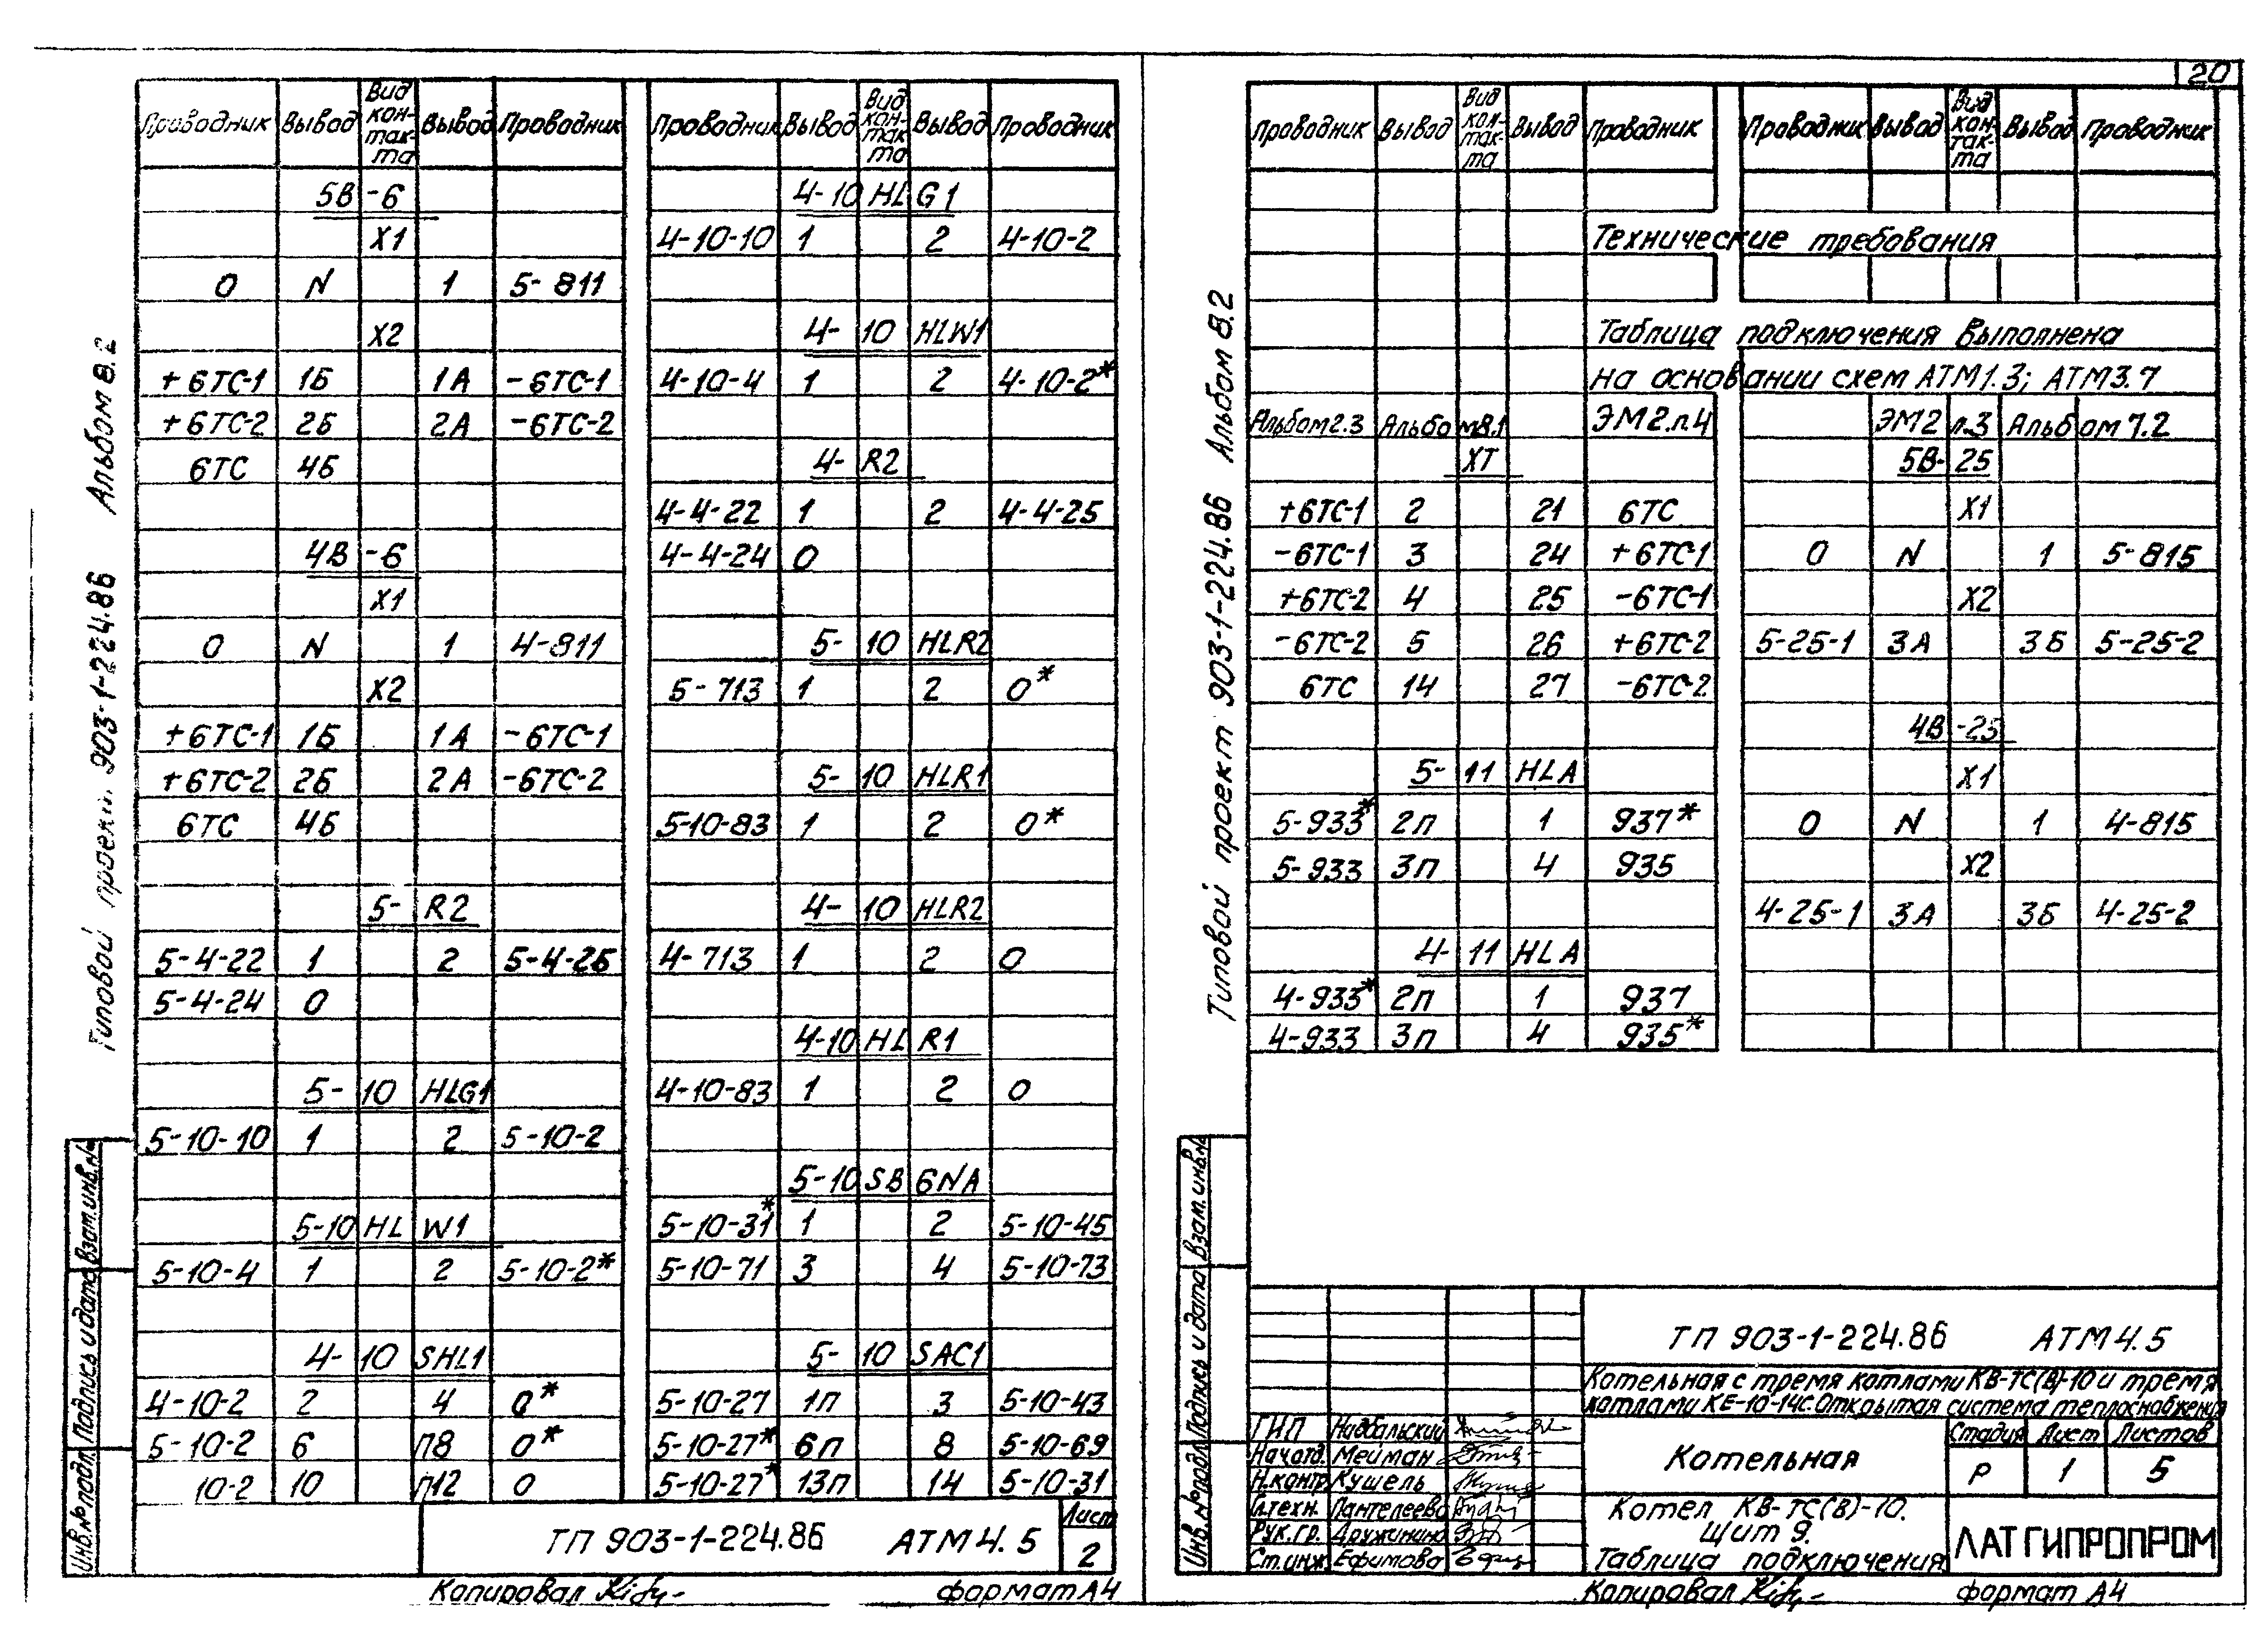 20
Типовой проект 903-1-224.86 Альбом 8.2
Проводник Вывод Вид кон-так-та Вывод Проводник
5В-6
X1
0 N 1 5-811
X2
+6ТС-1 1Б 1А -6ТС-1
+6ТС-2 2Б 2А -6ТС-2
6ТС 4Б
4В-6
X1
0 N 1 4-811
X2
+6ТС-1 1Б 1А -6ТС-1
+6ТС-2 2Б 2А -6ТС-2
6ТС 4Б
5-R2
5-4-22 1 2 5-4-25
5-4-24 0
5-10HLG1
5-10-10 1 2 5-10-2
5-10HLW1
5-10-4 1 2 5-10-2*
4-10SHL1
4-10-2 2 4 0*
5-10-2 6 П8 0*
10-2 10 П12 0
Проводник Вывод Вид кон-так-та Вывод Проводник
4-10HLG1
4-10-10 1 2 4-10-2
4-10HLW1
4-10-4 1 2 4-10-2*
4-R2
4-4-22 1 2 4-4-25
4-4-24 0
5-10HLR2
5-713 1 2 0*
5-10HLR1
5-10-83 1 2 0*
4-10HLR2
4-713 1 2 0
4-10HLR1
4-10-83 1 2 0
5-10SB6NA
5-10-31* 1 2 5-10-45
5-10-71 3 4 5-10-73
5-10SAC1
5-10-27 1п 3 5-10-43
5-10-27* 6п 8 5-10-69
5-10-27* 13п 14 5-10-31
Инв.№ подл. Подпись и дата Взам.инв.№
ТП 903-1-224.86 АТМ4.5
Лист
2
Копировал
формат А4
Типовой проект 903-1-224.86 Альбом 8.2
Проводник Вывод Вид кон-так-та Вывод Проводник
Проводник Вывод Вид кон-так-та Вывод Проводник
Технические требования
Таблица подключения выполнена
на основании схем АТМ1.3; АТМ3.7
Альбом2.3 Альбом8.1 ЭМ2.л.4 ЭМ2 л.3 Альбом 7.2
XT
+6ТС-1 2 21 6ТС
-6ТС-1 3 24 +6ТС-1
+6ТС-2 4 25 -6ТС-1
-6ТС-2 5 26 +6ТС-2
6ТС 14 27 -6ТС-2
5-11HLA
5-933* 2п 1 937*
5-933 3п 4 935
4-11HLA
4-933* 2п 1 937
4-933 3п 4 935*
5В-25
X1
0 N 1 5-815
X2
5-25-1 3А 3Б 5-25-2
4В-25
X1
0 N 1 4-815
X2
4-25-1 3А 3Б 4-25-2
Инв.№ подл. Подпись и дата Взам.инв.№
ТП 903-1-224.86 АТМ4.5
Котельная с тремя котлами КВ-ТС(В)-10 и тремя
котлами КЕ-10-14С. Открытая система теплоснабжения
ГИП Надбальский
Нач.отд. Мейман
Н.контр. Кушель
Гл.техн. Пантелеева
Рук.гр. Дружинина
Ст.инж. Ефимова
Котельная
Стадия Лист Листов
Р 1 5
Котел КВ-ТС(В)-10.
Щит 9.
Таблица подключения
ЛАТГИПРОПРОМ
Копировал
формат А4